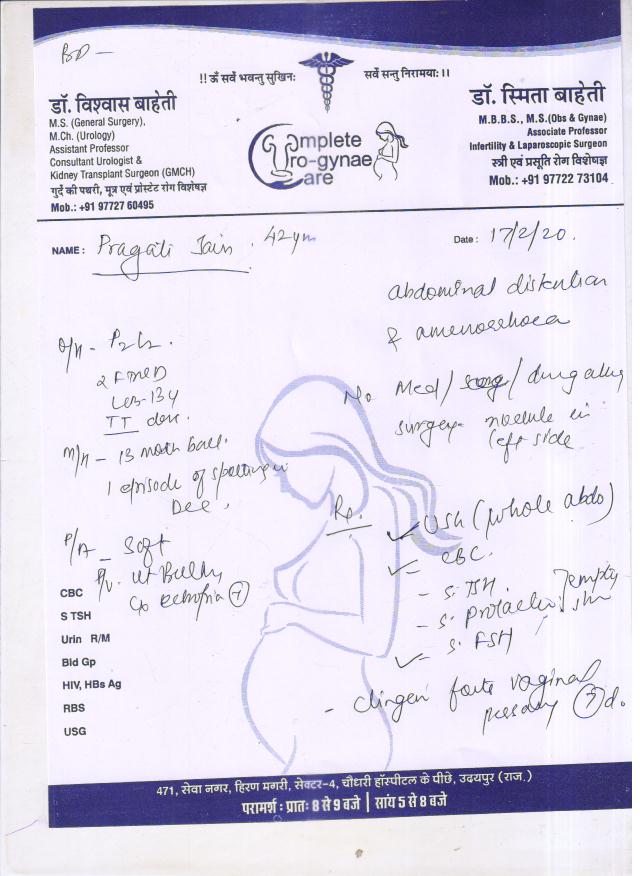 BD -
!! ॐ सर्वे भवन्तु सुखिनः सर्वे सन्तु निरामयाः ।।
डॉ. विश्वास बाहेती
M.S. (General Surgery),
M.Ch. (Urology)
Assistant Professor
Consultant Urologist &
Kidney Transplant Surgeon (GMCH)
गुर्दे की पथरी, मूत्र एवं प्रोस्टेट रोग विशेषज्ञ
Mob.: +91 97727 60495
Complete
Uro-gynae
Care
डॉ. स्मिता बाहेती
M.B.B.S., M.S.(Obs & Gynae)
Associate Professor
Infertility & Laparoscopic Surgeon
स्त्री एवं प्रसूति रोग विशेषज्ञ
Mob.: +91 97722 73104
NAME : Pragati Jain . 42 ym
Date : 17/2/20.
abdominal distention
& amenorrhoea
No Med / / drug allergy
surgery - nodule in
left side
O/H - P2L2.
2 FTND
LCB - 13y
TT done.
M/H - 13 month back.
1 episode of spotting in
Dec,
P/A - Soft
P/V. ut Bulky
(+)
Rx.
USG (whole abdo)
CBC.
- S. TSH.
- S. Prolactin
empty
- S. FSH
- Clingen forte vaginal
pessary (7) d.
CBC
S TSH
Urin R/M
Bld Gp
HIV, HBs Ag
RBS
USG
471, सेवा नगर, हिरण मगरी, सेक्टर-4, चौधरी हॉस्पीटल के पीछे, उदयपुर (राज.)
परामर्श : प्रातः 8 से 9 बजे | सांय 5 से 8 बजे